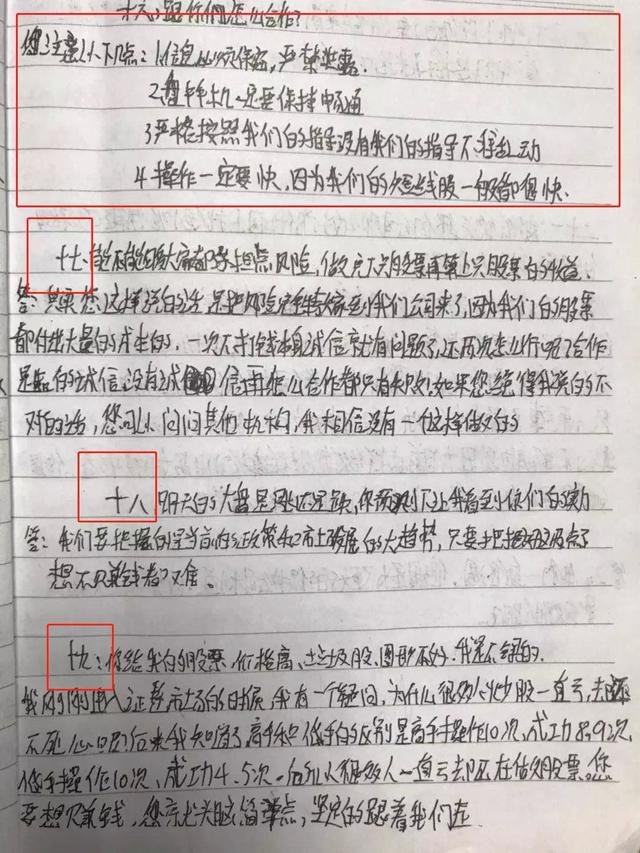 十六：跟你们怎么合作？
您注意以下几点：1.信息必须保密，严禁泄露.
2.手机一定要保持畅通
3.严格按照我们的指导没有我们的指导不得乱动
4.操作一定要快，因为我们的短线股一般都很快.
十七：能不能给大家都承担点风险，做完下只股票再算上只股票的收益.
答：其实您这样说的话，是把风险完全转嫁到我们公司来了，因为我们的股票
都付出大量的成本的，一次不打钱本身诚信就有问题了，还两次怎么行呢？合作
是靠的诚信，没有诚信再怎么合作都只有失败，如果您觉得我说的不
对的话，您可以问问其他机构，我相信没有一个这样做的
十八 明天的大盘是涨还是跌，你预测下让我看到你们的实力
答：我们要把握的是当前的政策和市场发展的大趋势，只要把握那么点
想不赚钱都难.
十九：你给我的股票，价格高，垃圾股，图形不好.我是不会的.
我刚刚进入证券市场的时候，我有一个疑问，为什么很多人炒股一直亏，
后来我知道了高手和低手的区别是高手操作10次，成功8.9次，
低手操作10次，成功4.5次.所以很多人一直亏在做股票.您
要想赚钱，您头脑简单点，坚定的跟着我们走.